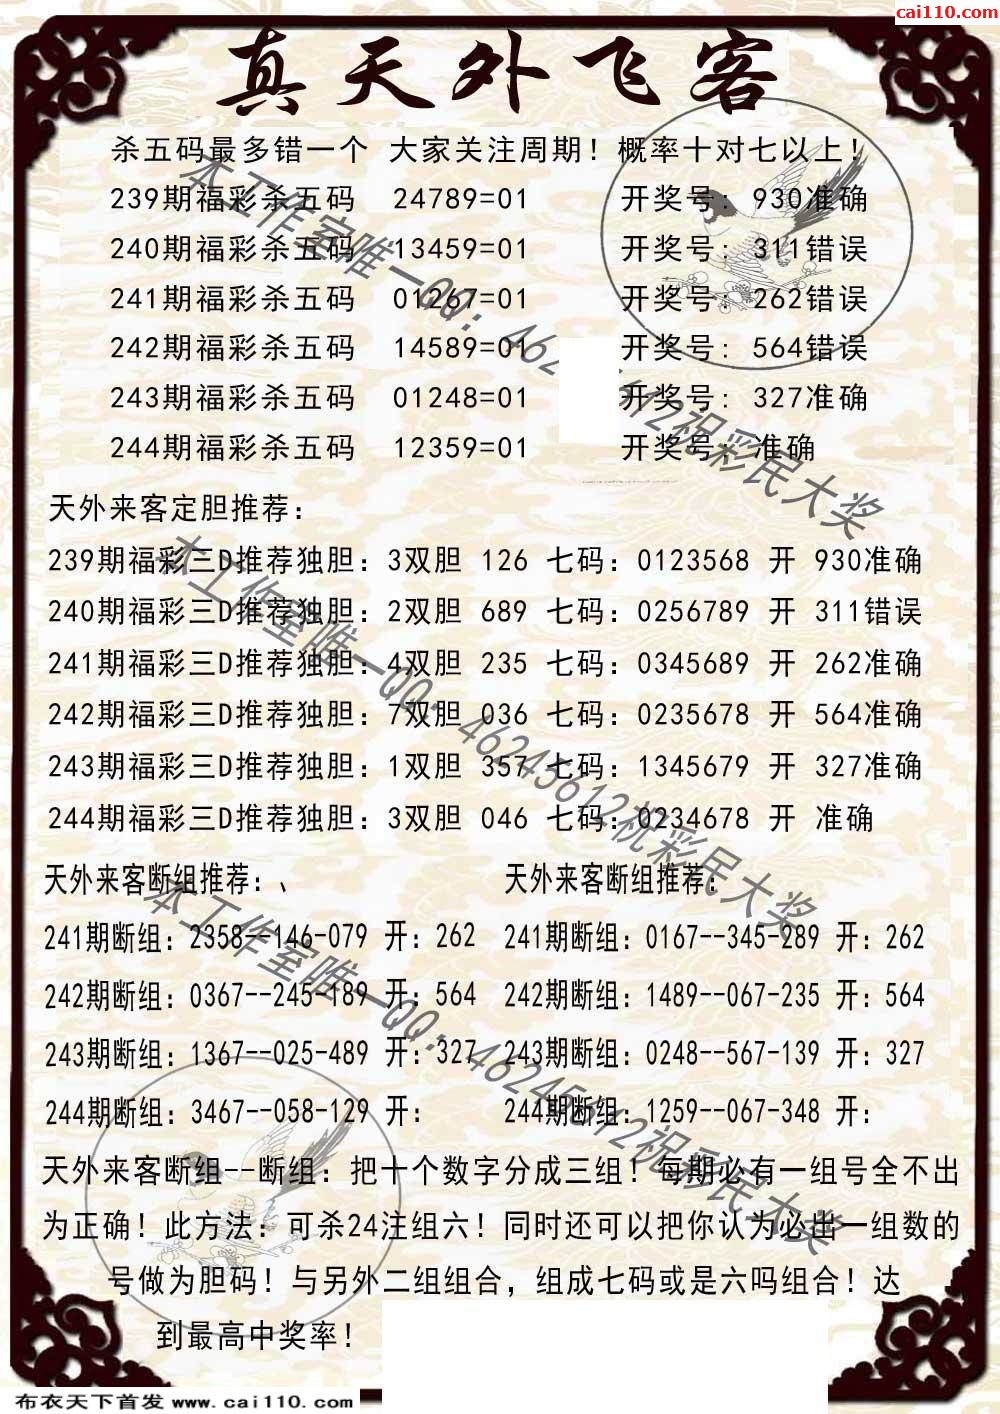 cai110.com
真天外飞客
杀五码最多错一个 大家关注周期！概率十对七以上！
239期福彩杀五码 24789=01 开奖号：930准确
240期福彩杀五码 13459=01 开奖号：311错误
241期福彩杀五码 01267=01 开奖号：262错误
242期福彩杀五码 14589=01 开奖号：564错误
243期福彩杀五码 01248=01 开奖号：327准确
244期福彩杀五码 12359=01 开奖号：准确
天外来客定胆推荐：
239期福彩三D推荐独胆：3双胆 126 七码：0123568 开 930准确
240期福彩三D推荐独胆：2双胆 689 七码：0256789 开 311错误
241期福彩三D推荐独胆：4双胆 235 七码：0345689 开 262准确
242期福彩三D推荐独胆：7双胆 036 七码：0235678 开 564准确
243期福彩三D推荐独胆：1双胆 357 七码：1345679 开 327准确
244期福彩三D推荐独胆：3双胆 046 七码：0234678 开 准确
天外来客断组推荐：、 天外来客断组推荐：
241期断组：2358--146-079 开：262 241期断组：0167--345-289 开：262
242期断组：0367--245-189 开：564 242期断组：1489--067-235 开：564
243期断组：1367--025-489 开：327 243期断组：0248--567-139 开：327
244期断组：3467--058-129 开： 244期断组：1259--067-348 开：
天外来客断组--断组：把十个数字分成三组！每期必有一组号全不出
为正确！此方法：可杀24注组六！同时还可以把你认为必出一组数的
号做为胆码！与另外二组组合，组成七码或是六吗组合！达
到最高中奖率！
本工作室唯一QQ：46245612祝彩民大奖
本工作室唯一QQ：46245612祝彩民大奖
本工作室唯一QQ：46245612祝彩民大奖
布衣天下首发 www.cai110.com